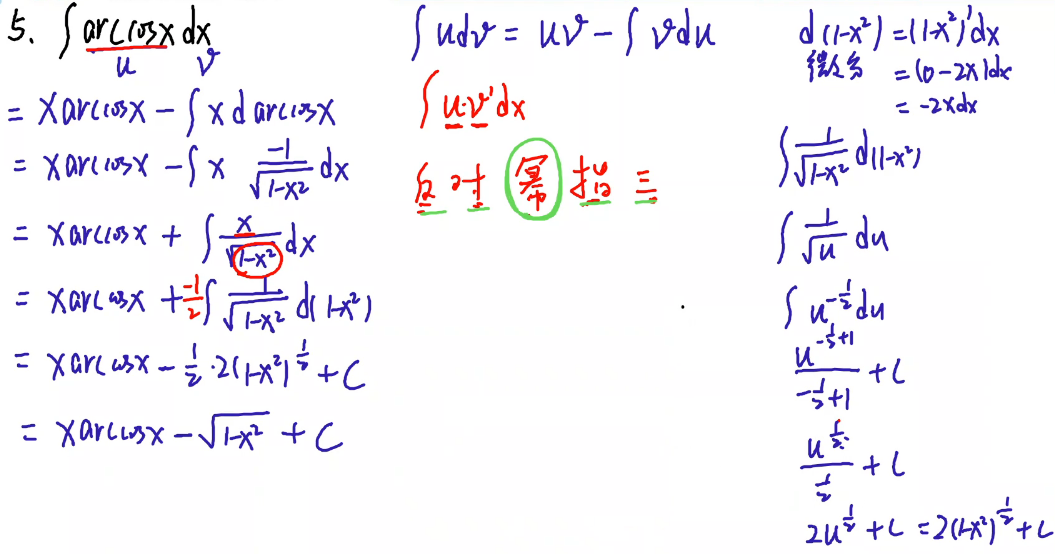 5. ∫ arccosx dx
u v
= xarccosx - ∫ x d arccosx
= xarccosx - ∫ x \frac{-1}{\sqrt{1-x²}} dx
= xarccosx + ∫ \frac{x}{\sqrt{1-x²}} dx
= xarccosx + \frac{-1}{2} ∫ \frac{1}{\sqrt{1-x²}} d(1-x²)
= xarccosx - \frac{1}{2}·2(1-x²)^{\frac{1}{2}} + C
= xarccosx - \sqrt{1-x²} + C
∫ u dv = uv - ∫ v du
∫ u·v' dx
反 对 幂 指 三
d(1-x²) = (1-x²)'dx
微分 = (0-2x)dx
= -2xdx
∫ \frac{1}{\sqrt{1-x²}} d(1-x²)
∫ \frac{1}{\sqrt{u}} du
∫ u^{-\frac{1}{2}} du
\frac{u^{-\frac{1}{2}+1}}{-\frac{1}{2}+1} + C
\frac{u^{\frac{1}{2}}}{\frac{1}{2}} + C
2u^{\frac{1}{2}} + C = 2(1-x²)^{\frac{1}{2}} + C